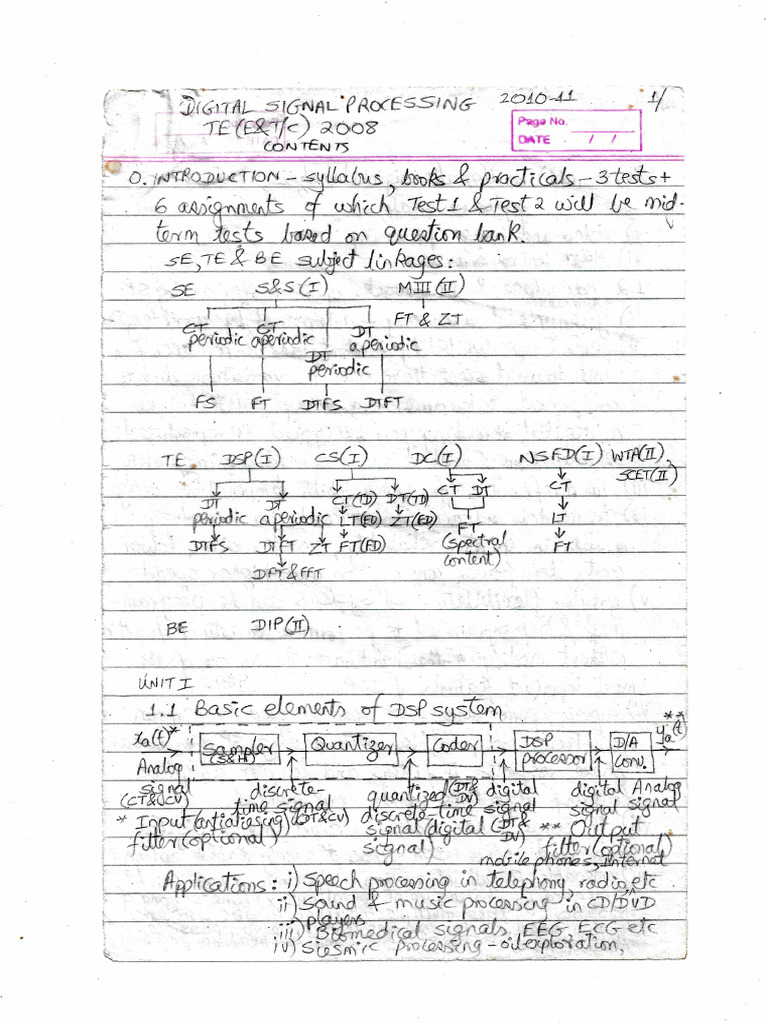 DIGITAL SIGNAL PROCESSING 2010-11 1/
TE (E&T/C) 2008
Page No.
DATE / /
CONTENTS
0. INTRODUCTION - syllabus, books & practicals - 3 tests +
6 assignments of which Test 1 & Test 2 will be mid-
term tests based on question bank.
SE, TE & BE subject linkages:
SE S&S(I) MIII(II)
CT periodic CT aperiodic DT periodic DT aperiodic FT & ZT
FS FT DTFS DTFT
TE DSP(I) CS(I) DC(I) NSFD(I) WTA(II), SCET(II)
DT DT CT(TD) DT(TD) CT DT CT
periodic aperiodic LT(FD) ZT(FD) FT LT
DTFS DTFT ZT FT(FD) (spectral content) FT
DFT & FFT
BE DIP(II)
UNIT I
1.1 Basic elements of DSP system
xa(t)* Sampler (S&H) Quantizer Coder DSP processor D/A Conv. ya(t)**
Analog signal (CT&CV) discrete-time signal (DT&CV) quantized discrete-time signal (digital signal) (DT&DV) digital signal (DT&DV) digital signal Analog signal
* Input (antialiasing) filter (optional) ** Output filter (optional)
mobile phones, Internet
Applications: i) Speech processing in telephony, radio, etc
ii) Sound & music processing in CD/DVD
players
iii) Biomedical signals EEG, ECG etc
iv) Siesmic processing - oil exploration,